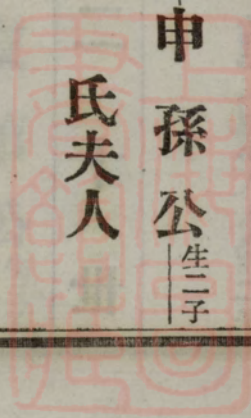 申孫公生二子
氏夫人